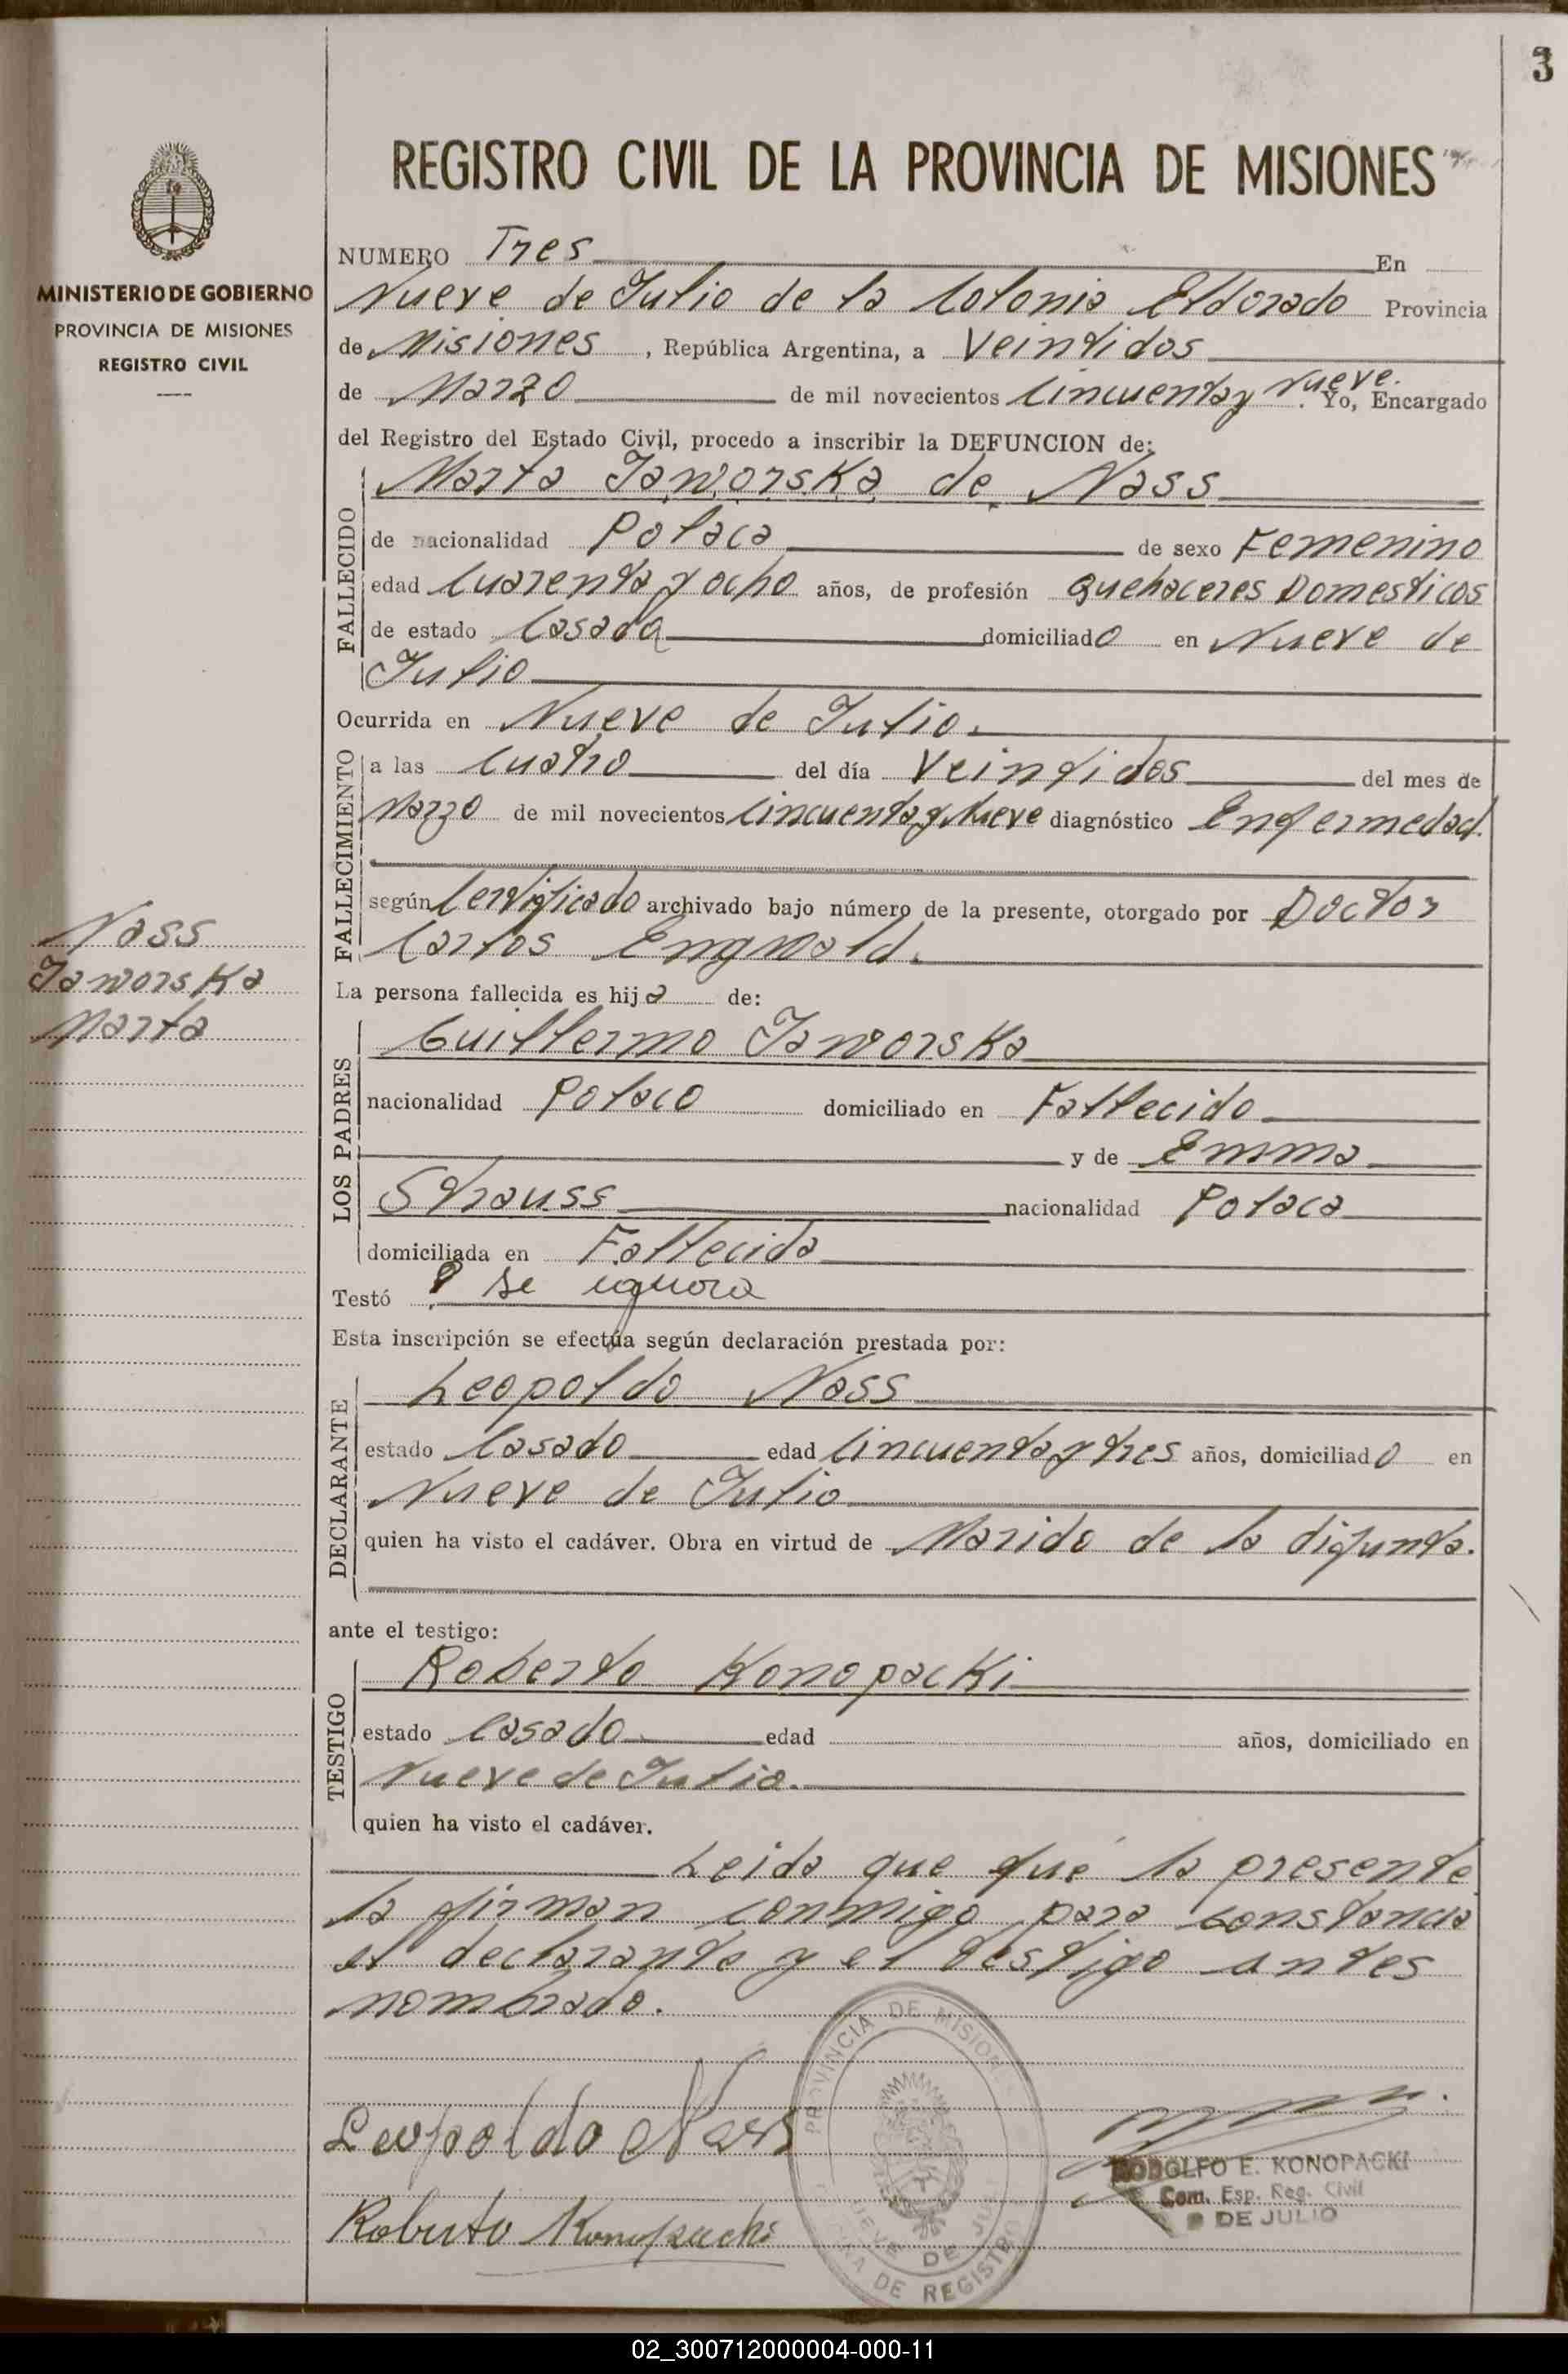 3
REGISTRO CIVIL DE LA PROVINCIA DE MISIONES
MINISTERIO DE GOBIERNO
PROVINCIA DE MISIONES
REGISTRO CIVIL
NUMERO Tres En
Nueve de Julio de la Colonia Eldorado Provincia
de Misiones, República Argentina, a Veintidos
de Marzo de mil novecientos Cincuenta y Nueve. Yo, Encargado
del Registro del Estado Civil, procedo a inscribir la DEFUNCION de:
FALLECIDO
Marta Jaworska de Nass
de nacionalidad Polaca de sexo Femenino
edad Cuarenta y ocho años, de profesión Quehaceres Domesticos
de estado Casada domiciliado en Nueve de
Julio
Ocurrida en Nueve de Julio.
FALLECIMIENTO
a las Cuatro del día Veintidos del mes de
Marzo de mil novecientos Cincuenta y Nueve diagnóstico Enfermedad.
según Certificado archivado bajo número de la presente, otorgado por Doctor
Carlos Engwald.
Nass
Jaworska
Marta
La persona fallecida es hija de:
LOS PADRES
Guillermo Jaworska
nacionalidad Polaco domiciliado en Fallecido
y de Emma
Strauss nacionalidad Polaca
domiciliada en Fallecida
Testó ? se ignora
Esta inscripción se efectúa según declaración prestada por:
DECLARANTE
Leopoldo Nass
estado Casado edad Cincuenta y tres años, domiciliado en
Nueve de Julio
quien ha visto el cadáver. Obra en virtud de Marido de la difunta.
ante el testigo:
TESTIGO
Roberto Konopacki
estado Casado edad años, domiciliado en
Nueve de Julio.
quien ha visto el cadáver.
Leida que fué la presente
la firman conmigo para constancia
el declarante y el testigo antes
nombrado.
Leopoldo Nass
Roberto Konopacki
PROVINCIA DE MISIONES
NUEVE DE JULIO
DE REGISTRO
RODOLFO E. KONOPACKI
Com. Esp. Reg. Civil
9 DE JULIO
02_300712000004-000-11